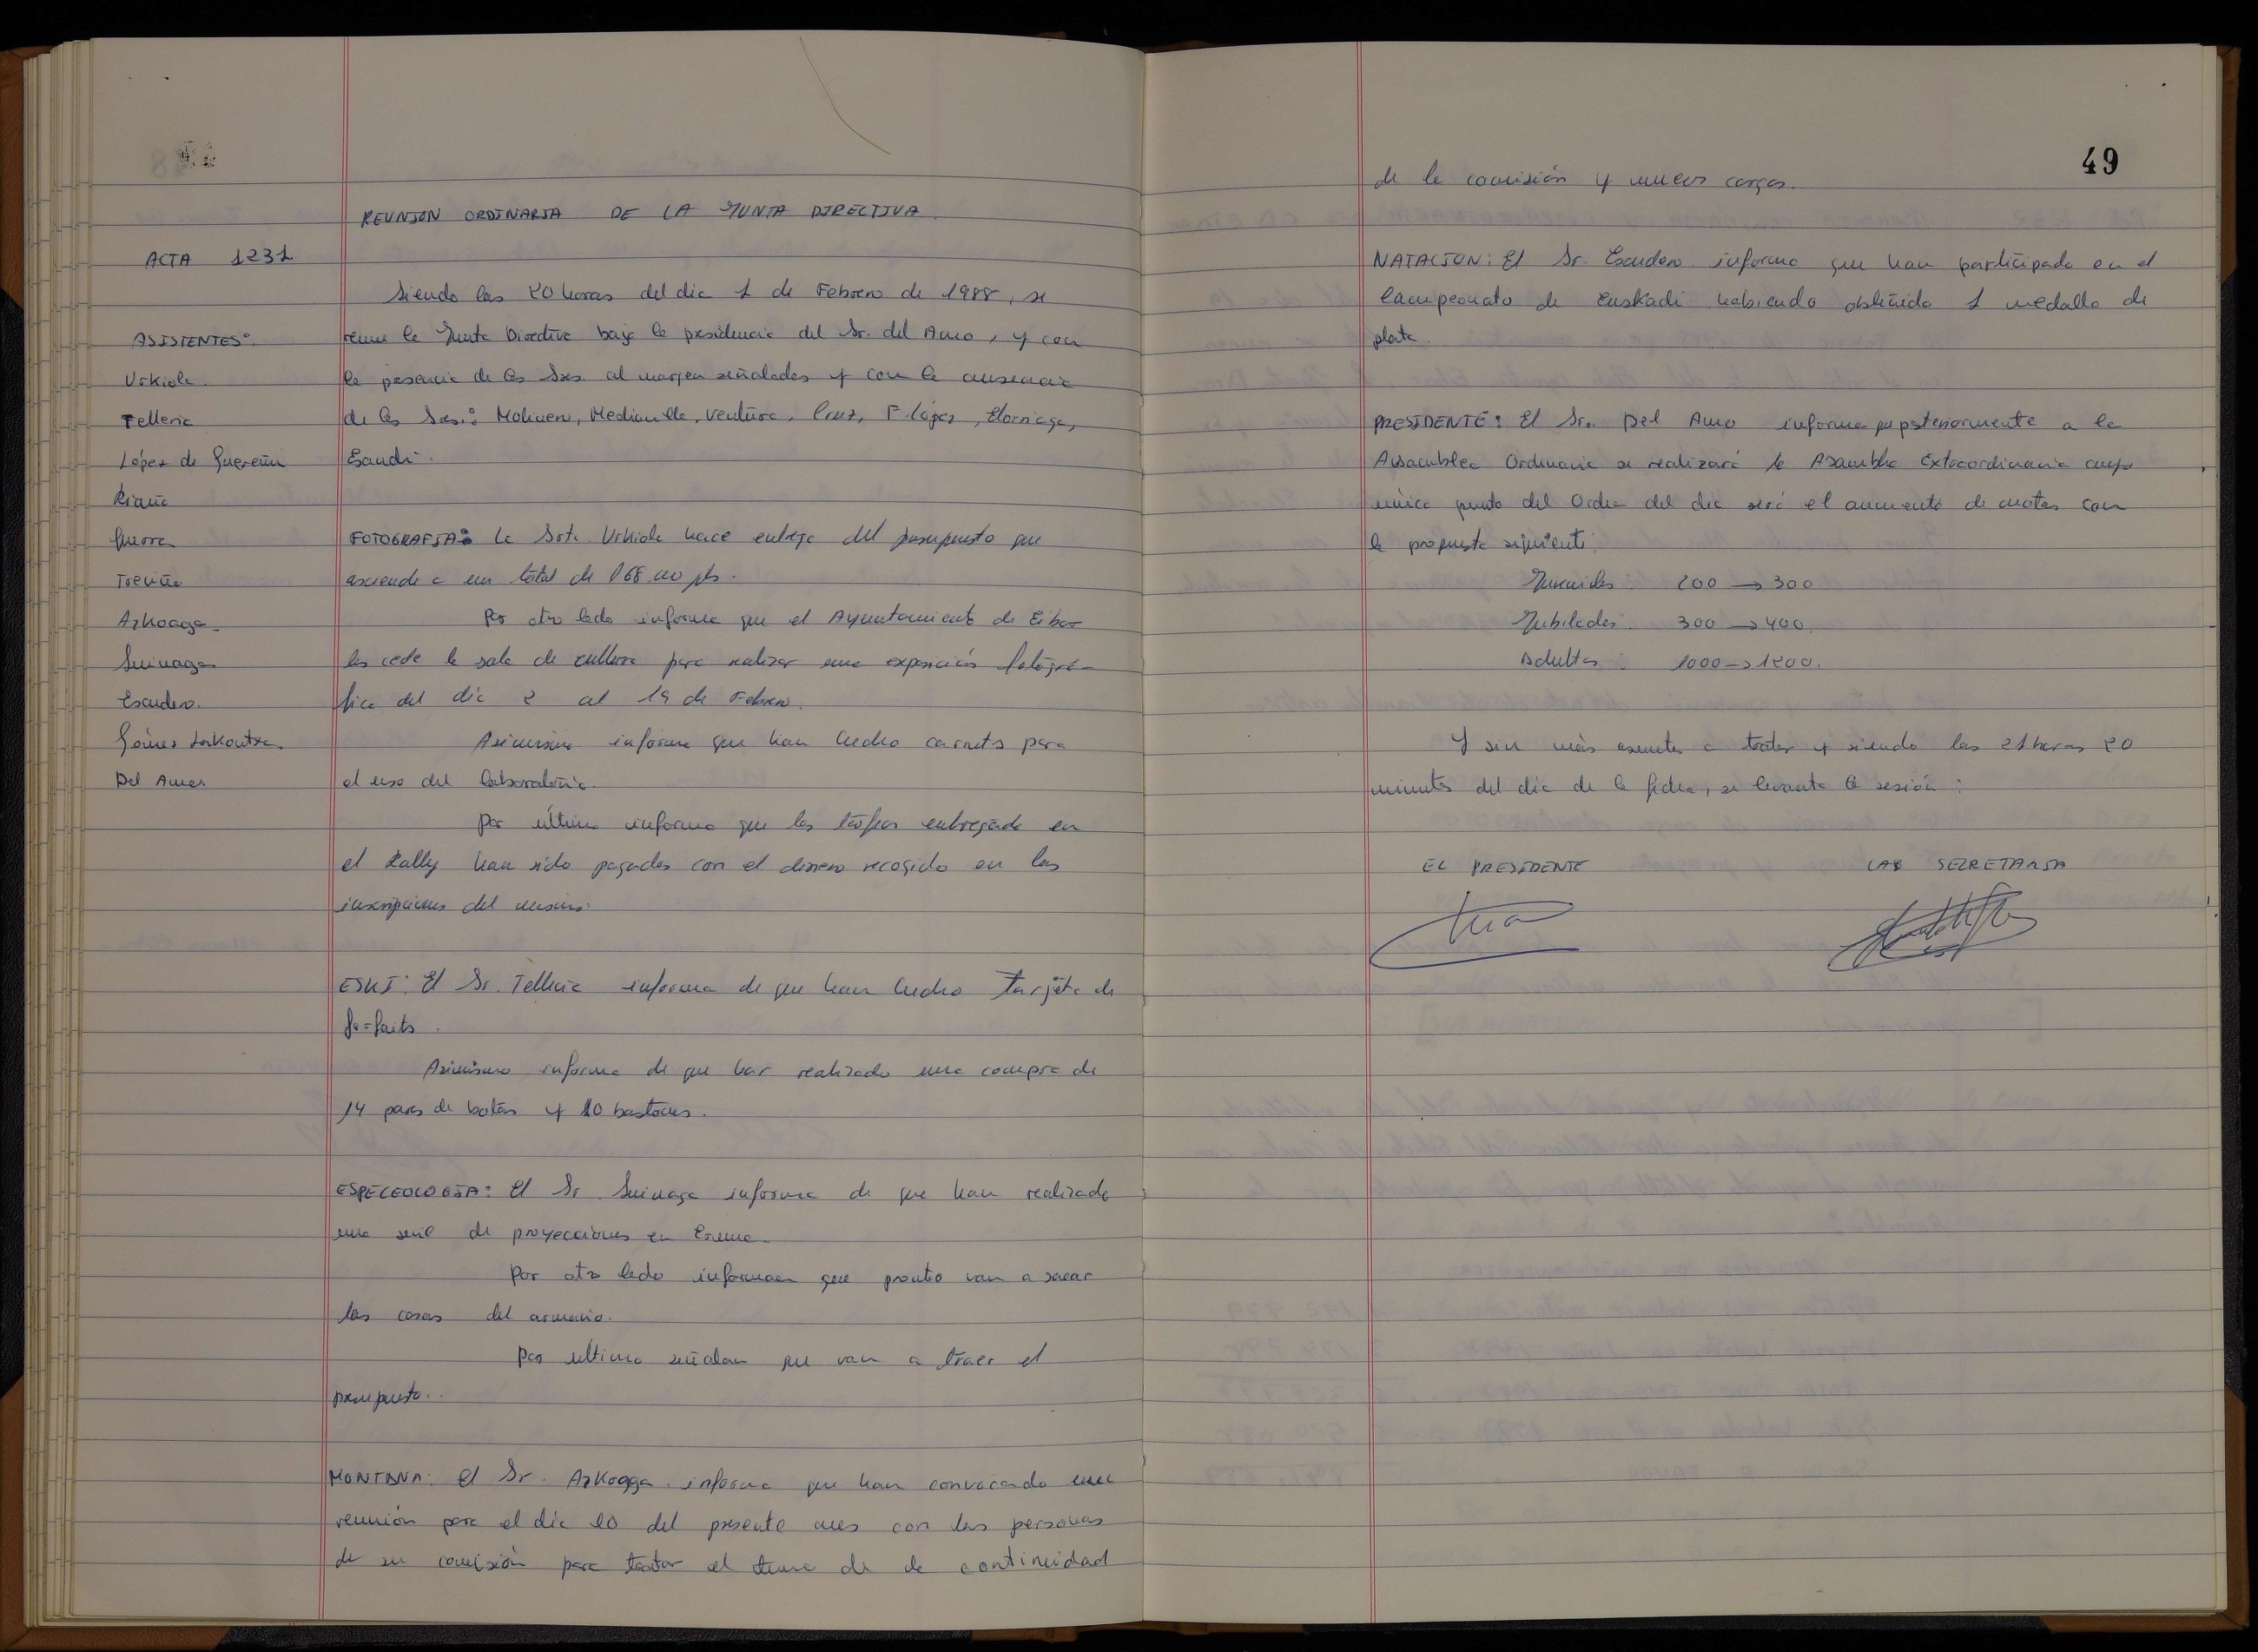 REUNION ORDINARIA DE LA JUNTA DIRECTIVA.
ACTA 1231
Siendo las 20 horas del dia 1 de Febrero de 1988, se
reune la Junta Directiva bajo la presidencia del Sr. del Amo, y con
la presencia de los Sres al margen señalados y con la ausencia
de los Sres: Molinero, Medianilla, Ventura, Cruz, F. López, Elorriaga,
ASISTENTES:
Urkiola.
Telleria
López de Guereñu
Riaño
Guerra
Treviño
Azkoaga.
Suinaga
Escudero.
Gómez
Del Amo.
FOTOGRAFIA: La Srta. Urkiola hace entrega del presupuesto que
asciende a un total de pts.
Por otro lado informa que el Ayuntamiento de Eibar
les cede la sala de cultura para realizar una exposición fotográ-
fica del dia 2 al 19 de Febrero.
Asimismo informa que han hecho carnets para
el uso del laboratorio.
Por último informa que los trofeos entregado en
el Rally han sido pagados con el dinero recogido en las
inscripciones del mismo.
ESKI: El Sr. Telleria informa de que han hecho tarjeta de
for-faits.
Asimismo informa de que han realizado una compra de
14 pares de botas y 10 bastones.
ESPELEOLOGIA: El Sr. Suinaga informa de que han realizado
una serie de proyecciones en Ermua.
Por otro lado informan que pronto van a sacar
las cosas del armario.
Por ultimo señalan que van a traer el
presupuesto..
MONTAÑA: El Sr. Azkoaga informa que han convocado una
reunión para el dia 20 del presente mes con las personas
de su comisión para tratar el tema de de continuidad
49
de la comisión y nuevos cargos.
NATACION: El Sr. Escudero informa que han participado en el
Campeonato de Euskadi habiendo obtenido 1 medalla de
plata.
PRESIDENTE: El Sr. Del Amo informa que posteriormente a la
Asamblea Ordinaria se realizará la Asamblea Extraordinaria cuyo
único punto del Orden del dia será el aumento de cuotas con
la propuesta siguiente:
Juveniles: 200 → 300
Jubilados: 300 → 400.
Adultos: 1000 → 1200.
Y sin más asuntos a tratar y siendo las 21 horas 20
minutos del dia de la fecha, se levanta la sesión:
EL PRESIDENTE LA SECRETARIA